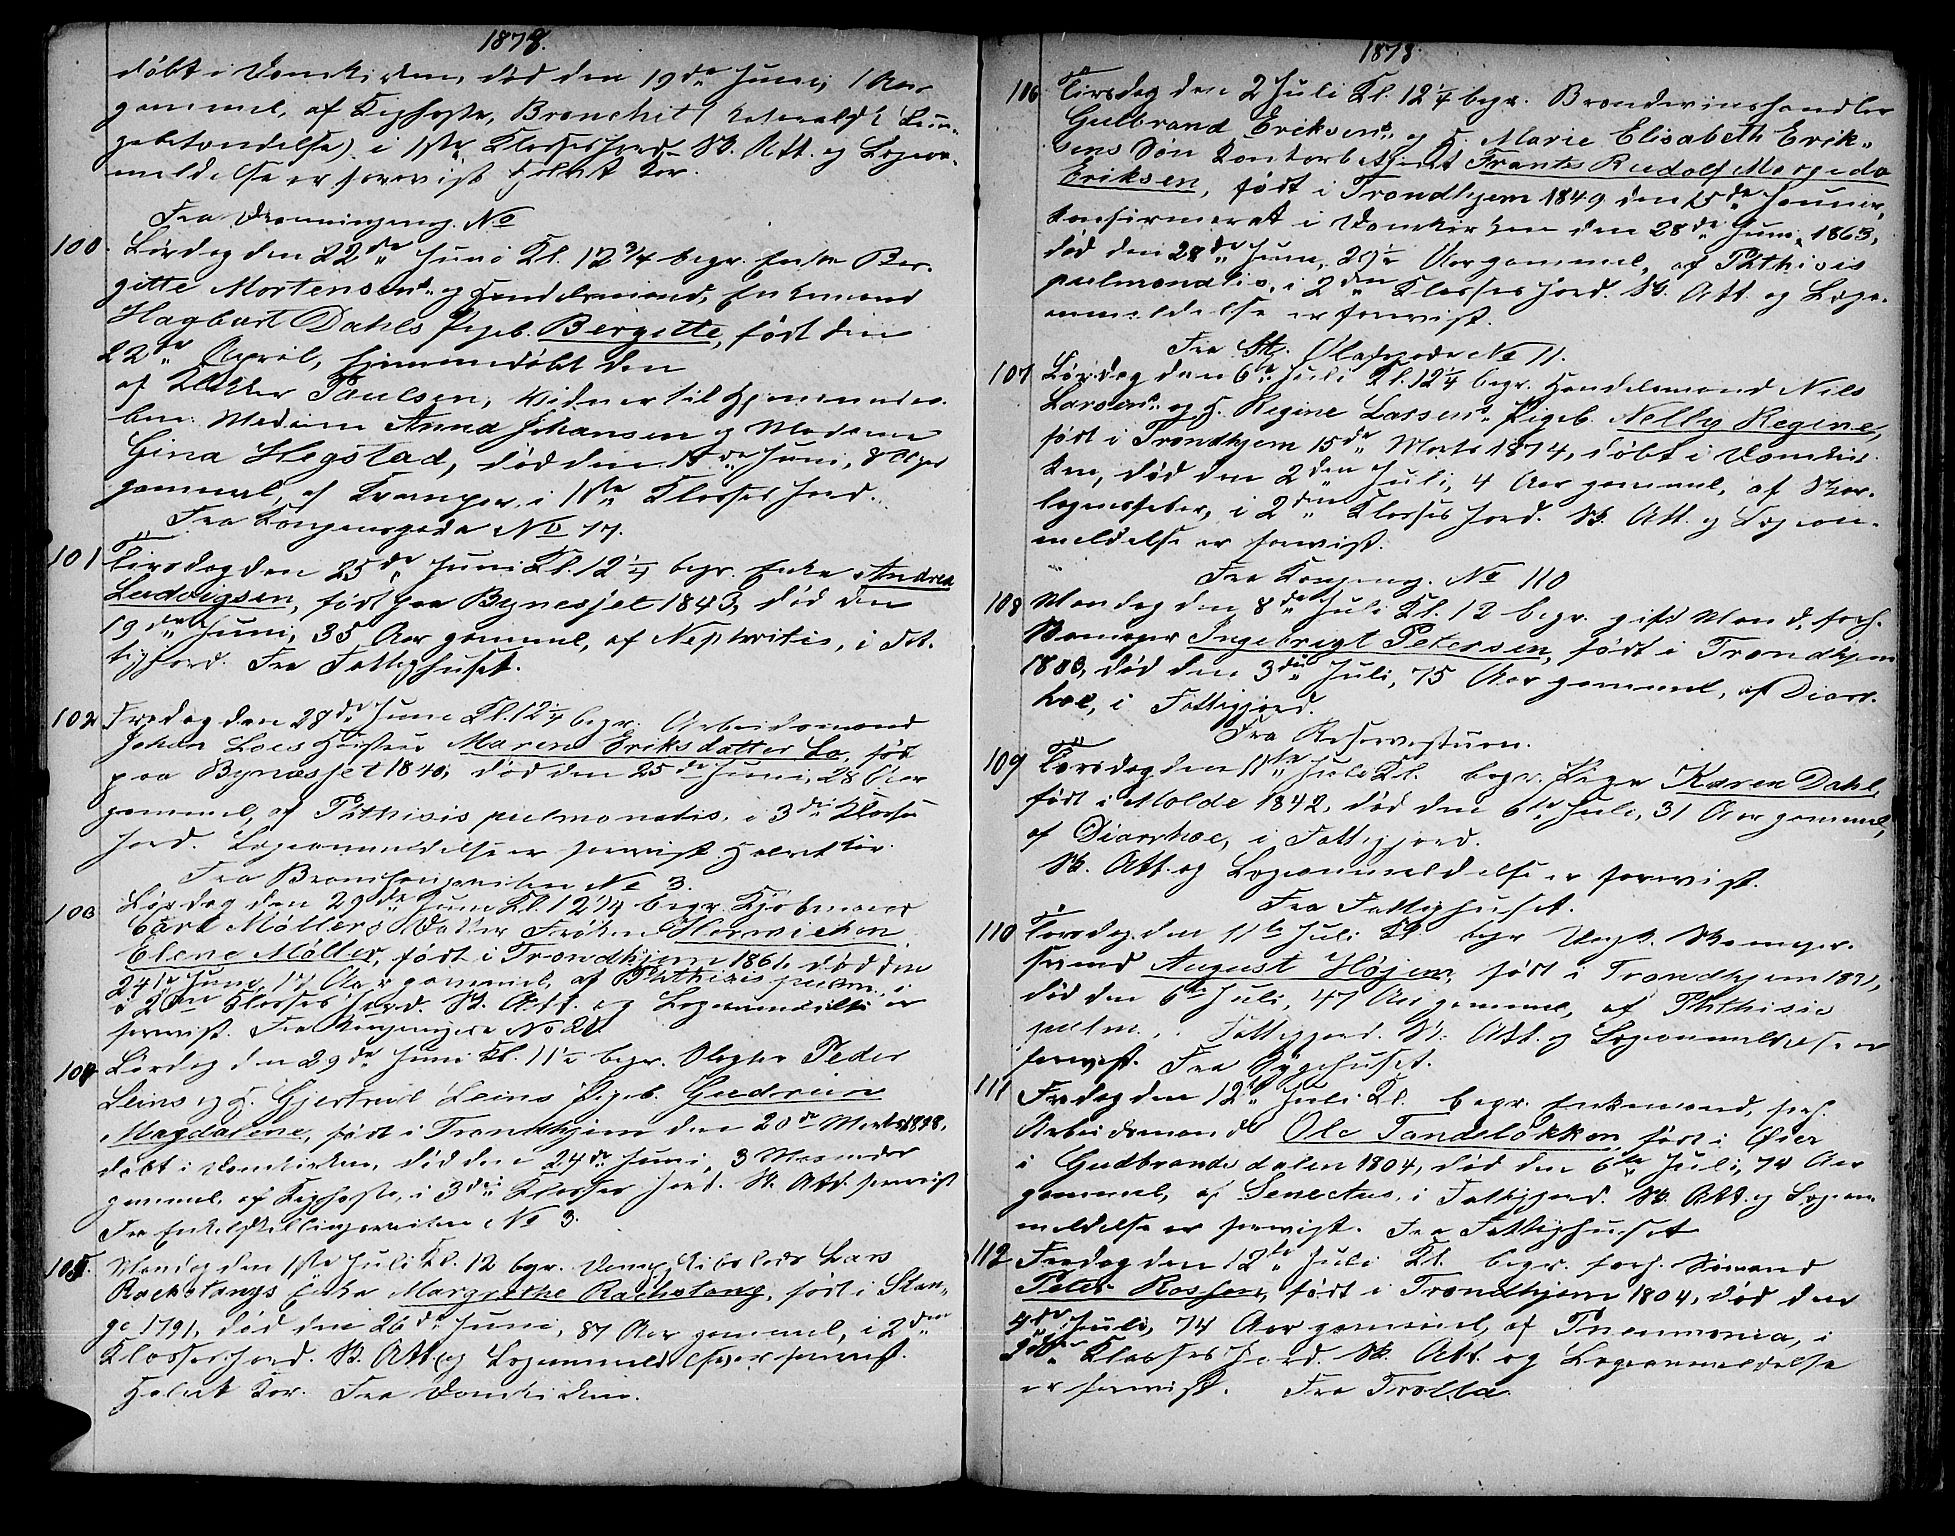 1878.
døbt i Domkirken, død den 19de Juni, 1 Aar
gammel, af Kighoste, Bronchit (
gebetændelse) i 1ste Klasses Jord. Sk. Att. og Lægean-
meldelse er forevist
Fra Dronningensg. No
100. Lørdag den 22de Juni Kl. 12 3/4 begr. Enke Ber-
gitte Mortensens og Handelsmand, Enkemand
Hagbart Dahls Pigeb. Bergitte, født den
22de April, hjemmedøbt den
af Klokker Paulsen, Vidner til Hjemmedaa-
ben: Madam Anna Johansen og Madame
Gina Hegstad, død den Juni, 8 Uger
gammel, af Kramper, i 1ste Klasses Jord.
Fra Kongensgade No 77.
101 Tirsdag den 25de Juni Kl. 12 1/4 begr. Enke Andrea
Ludvigsen, født paa Bynesset 1843, død den
19de Juni, 35 Aar gammel, af Nephritis, i Fat-
tigjord. Fra Fattighuset.
102 Fredag den 28de Juni Kl. 12 1/4 begr. Arbeidsmand
Johan Loes Hustru Maren Eriksdatter Lo, født
paa Bynesset 1840, død den 25de Juni, 28 Aar
gammel, af Phthisis pulmonalis, i 3die Klasses
Jord. Lægeanmeldelse er forevist
Fra No 3.
103 Lørdag den 29de Juni Kl. 12 1/4 begr. Kjøbmand
Carl Møllers Datter Frøken
Elene Møller, født i Trondhjem 1861, død den
24de Juni, 17 Aar gammel, af Phthisis pulm.,
i 2den Klasses Jord. Sk. Att. og Lægeanmeldelse er
forevist. Fra No
104 Lørdag den 29de Juni Kl. 11 1/2 begr. Slagter Peder
Leins og H. Gjertrud Leins Pigeb. Gudrun
Magdalene, født i Trondhjem den 20de Marts 1878,
døbt i Domkirken, død den 24de Juni, 3 Maaneder
gammel, af Kighoste, i 3die Klasses Jord. Sk. Att. forevist
Fra Enkelskillingsveiten No 3.
105. Mandag den 1ste Juli Kl. 12 begr. Lars
Rachstangs Enke Margrethe Rachstang, født i Stan-
ge 1791, død den 26de Juni, 87 Aar gammel, i 2den
Klasses Jord. Sk. Att. og Lægeanmeldelse er forevist.
Fra Domkirken.
1878.
106 Tirsdag den 2 Juli Kl. 12 1/4 begr. Brændevinshandler
Gulbrand Eriksens og H. Marie Elisabeth Erik-
sens Søn Kontorbetjent Frants Rudolf
Eriksen, født i Trondhjem 1849 den 15de Januar,
konfirmeret i Domkirken den 28de Juni 1863,
død den 28de Juni, 29 1/2 Aar gammel, af Phthisis
pulmonalis, i 2den Klasses Jord. Sk. Att. og Lægean-
meldelse er forevist.
Fra St. Olafsgade No 11.
107 Lørdag den 6te Juli Kl. 12 1/4 begr. Handelsmand Nils
Larsens og H. Regine Larsens Pigeb. Nelly Regine,
født i Trondhjem 15de Marts 1874, døbt i Domkir-
ken, død den 2den Juli, 4 Aar gammel, af Skar-
lagensfeber, i 2den Klasses Jord. Sk. Att. og Lægean-
meldelse er forevist.
Fra Kongensg. No 110
108 Mandag den 8de Juli Kl. 12 begr. gift Mand, forh.
Skomager Ingebrigt Petersen, født i Trondhjem
1803, død den 3die Juli, 75 Aar gammel, af Diarr-
hoe, i Fattigjord.
Fra Reservestuen.
109 Torsdag den 11te Juli Kl. begr. Pige Karen Dahl,
født i Molde 1842, død den 6te Juli, 31 Aar gammel,
af Diarrhoe, i Fattigjord.
Sk. Att. og Lægeanmeldelse er forevist.
Fra Fattighuset.
110 Torsdag den 11te Juli Kl. begr. Skomager-
svend August Højem, født i Trondhjem 1831,
død den 6te Juli, 47 Aar gammel, af Phthisis
pulm., i Fattigjord. Sk. Att. og Lægeanmeldelse er
forevist. Fra Sygehuset.
111 Fredag den 12te Juli Kl. begr. Enkemand, forh.
Arbeidsmand Ole Tandeløkken, født i Øier
i Gudbrandsdalen 1804, død den 6te Juli, 74 Aar
gammel, af Senectus, i Fattigjord. Sk. Att. og Lægean-
meldelse er forevist. Fra Fattighuset
112 Fredag den 12te Juli Kl. begr. forh. Sømand
Peter Rosshou, født i Trondhjem 1804, død den
4de Juli, 74 Aar gammel, af Pneumonia, i
Klasses Jord. Sk. Att. og Lægeanmeldelse
er forevist. Fra Trolla.